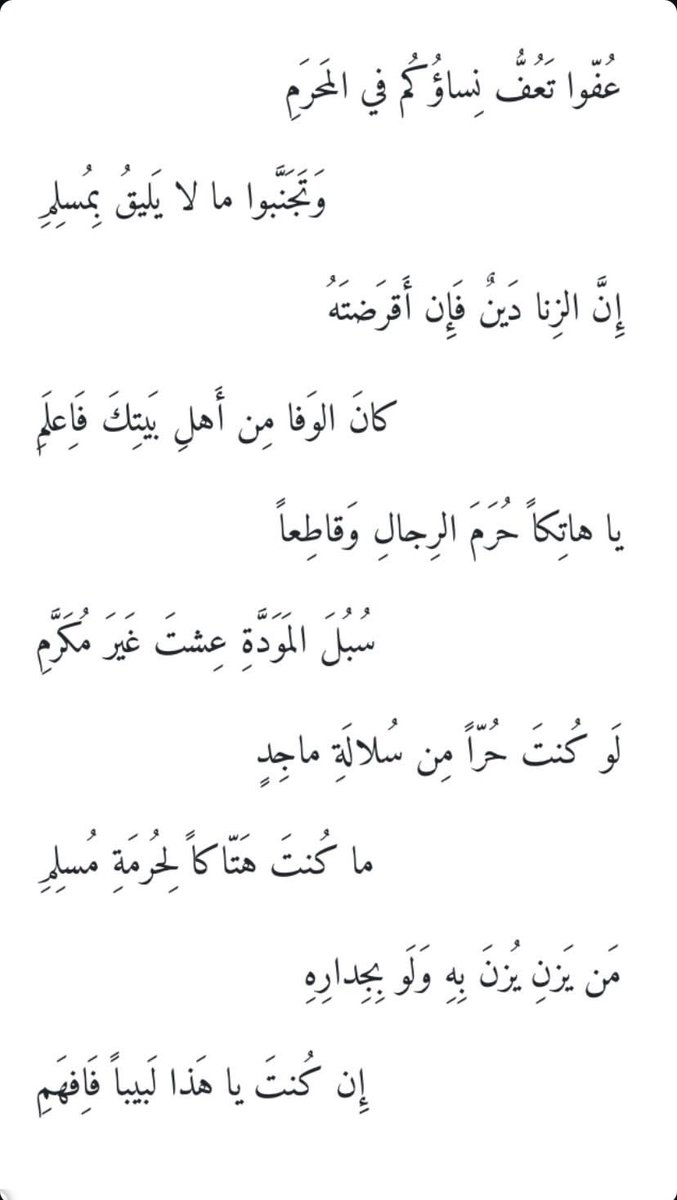 عُفّوا تَعُفُّ نِساؤُكُم في المَحرَمِ
وَتَجَنَّبوا ما لا يَليقُ بِمُسلِمِ
إِنَّ الزِنا دَينٌ فَإِن أَقرَضتَهُ
كانَ الوَفا مِن أَهلِ بَيتِكَ فَاِعلَمِ
يا هاتِكاً حُرَمَ الرِجالِ وَقاطِعاً
سُبُلَ المَوَدَّةِ عِشتَ غَيرَ مُكَرَّمِ
لَو كُنتَ حُرّاً مِن سُلالَةِ ماجِدٍ
ما كُنتَ هَتّاكاً لِحُرمَةِ مُسلِمِ
مَن يَزنِ يُزنَ بِهِ وَلَو بِجِدارِهِ
إِن كُنتَ يا هَذا لَبيباً فَاِفهَمِ